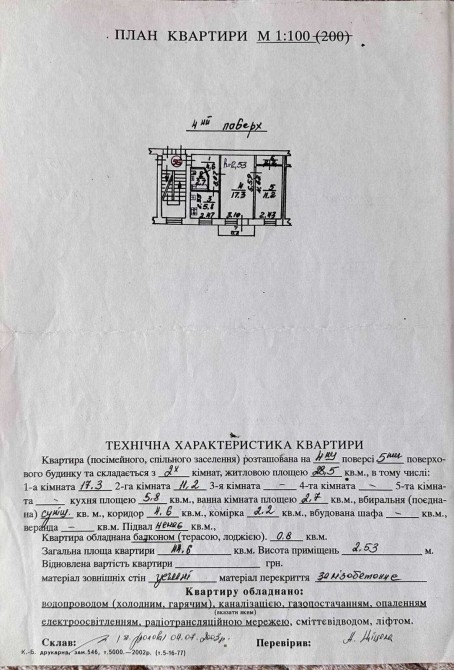 ПЛАН КВАРТИРИ М 1:100 (200)
4ий поверх
h=2,53
17.3
5.8
2.47 3.10 2.43
ТЕХНІЧНА ХАРАКТЕРИСТИКА КВАРТИРИ
Квартира (посімейного, спільного заселення) розташована на 4му поверсі 5ти поверхо-
вого будинку та складається з 2х кімнат, житловою площею 28,5 кв.м., в тому числі:
1-а кімната 17.3 2-га кімната 11,2 3-я кімната – 4-та кімната – 5-та кімна-
та – кухня площею 5.8 кв.м., ванна кімната площею 2.7 кв.м., вбиральня (поєдна-
на) суміщ кв.м., коридор 4.6 кв.м., комірка 2.2 кв.м., вбудована шафа – кв.м.,
веранда – кв.м. Підвал немає кв.м.,
Квартира обладнана балконом (терасою, лоджією) 0.8 кв.м.
Загальна площа квартири 44.6 кв.м. Висота приміщень 2.53 м.
Відновлена вартість квартири грн.
матеріал зовнішніх стін цегляні матеріал перекриття залізобетонне
Квартиру обладнано:
водопроводом (холодним, гарячим), каналізацією, газопостачанням, опаленням
(вказати яким)
електроосвітленням, радіотрансляційною мережею, сміттєвідводом, ліфтом.
Склав: Перевірив:
К.-Б. друкарня, зам.546, т.5000.—2002р. (т.5-16-77)